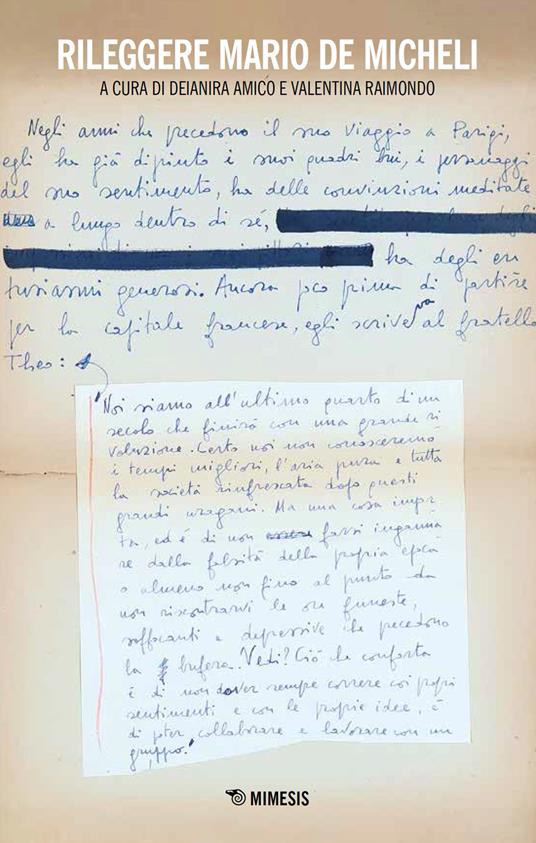 RILEGGERE MARIO DE MICHELI
A CURA DI DEIANIRA AMICO E VALENTINA RAIMONDO
Negli anni che precedono il suo viaggio a Parigi,
egli ha già dipinto i suoi quadri bui, i personaggi
del suo sentimento, ha delle convinzioni meditate
a lungo dentro di sé,
ha degli en
tusiasmi generosi. Ancora poco prima di partire
per la capitale francese, egli scriveva al fratello
Theo:
"Noi siamo all'ultimo quarto di un
secolo che finirà con una grande ri
voluzione. Certo noi non conosceremo
i tempi migliori, l'aria pura e tutta
la società rinfrescata dopo questi
grandi uragani. Ma una cosa impor
ta, ed è di non farsi inganna
re dalla falsità della propria epoca
o almeno non fino al punto da
non riscontrarvi le ore funeste,
soffocanti e depressive che precedono
la bufera. Vedi? Ciò che conforta
è di non dover sempre correre coi propri
sentimenti e con le proprie idee, è
di poter collaborare e lavorare con un
gruppo."
MIMESIS